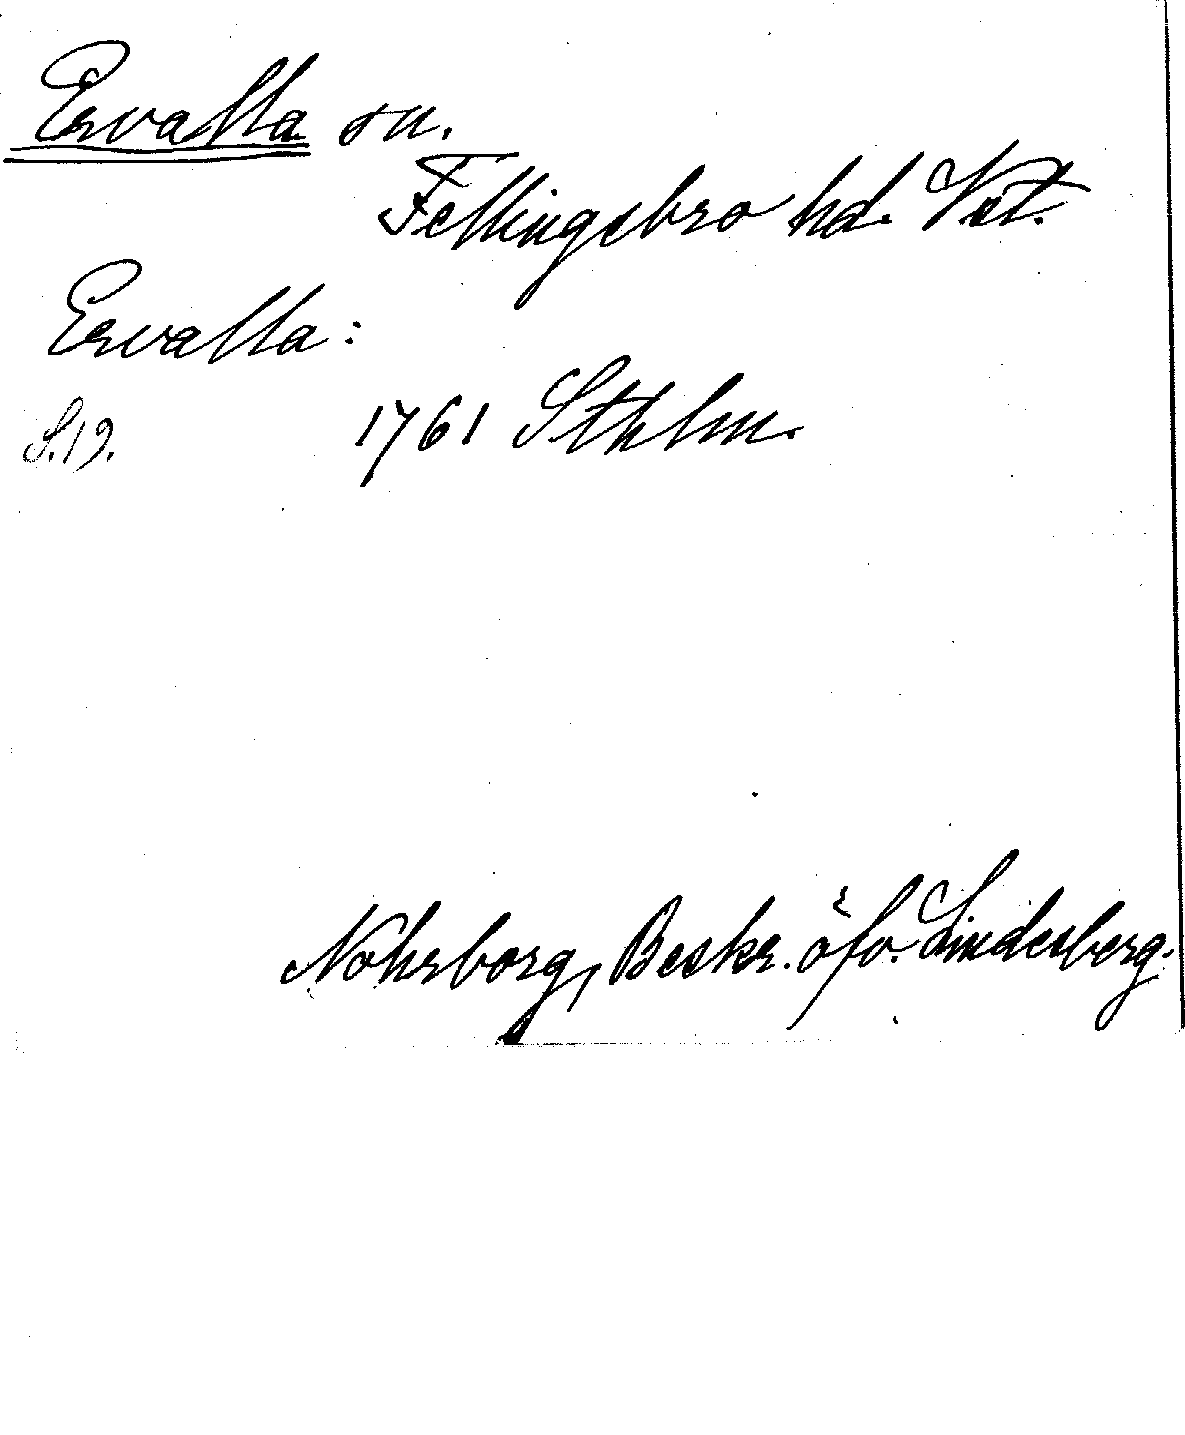 Ervalla sn.
Fellingsbro hd. Vstm.
Ervalla:
S. 19. 1761 Sthlm.
Nohrborg, Beskr. öfv. Lindesberg.